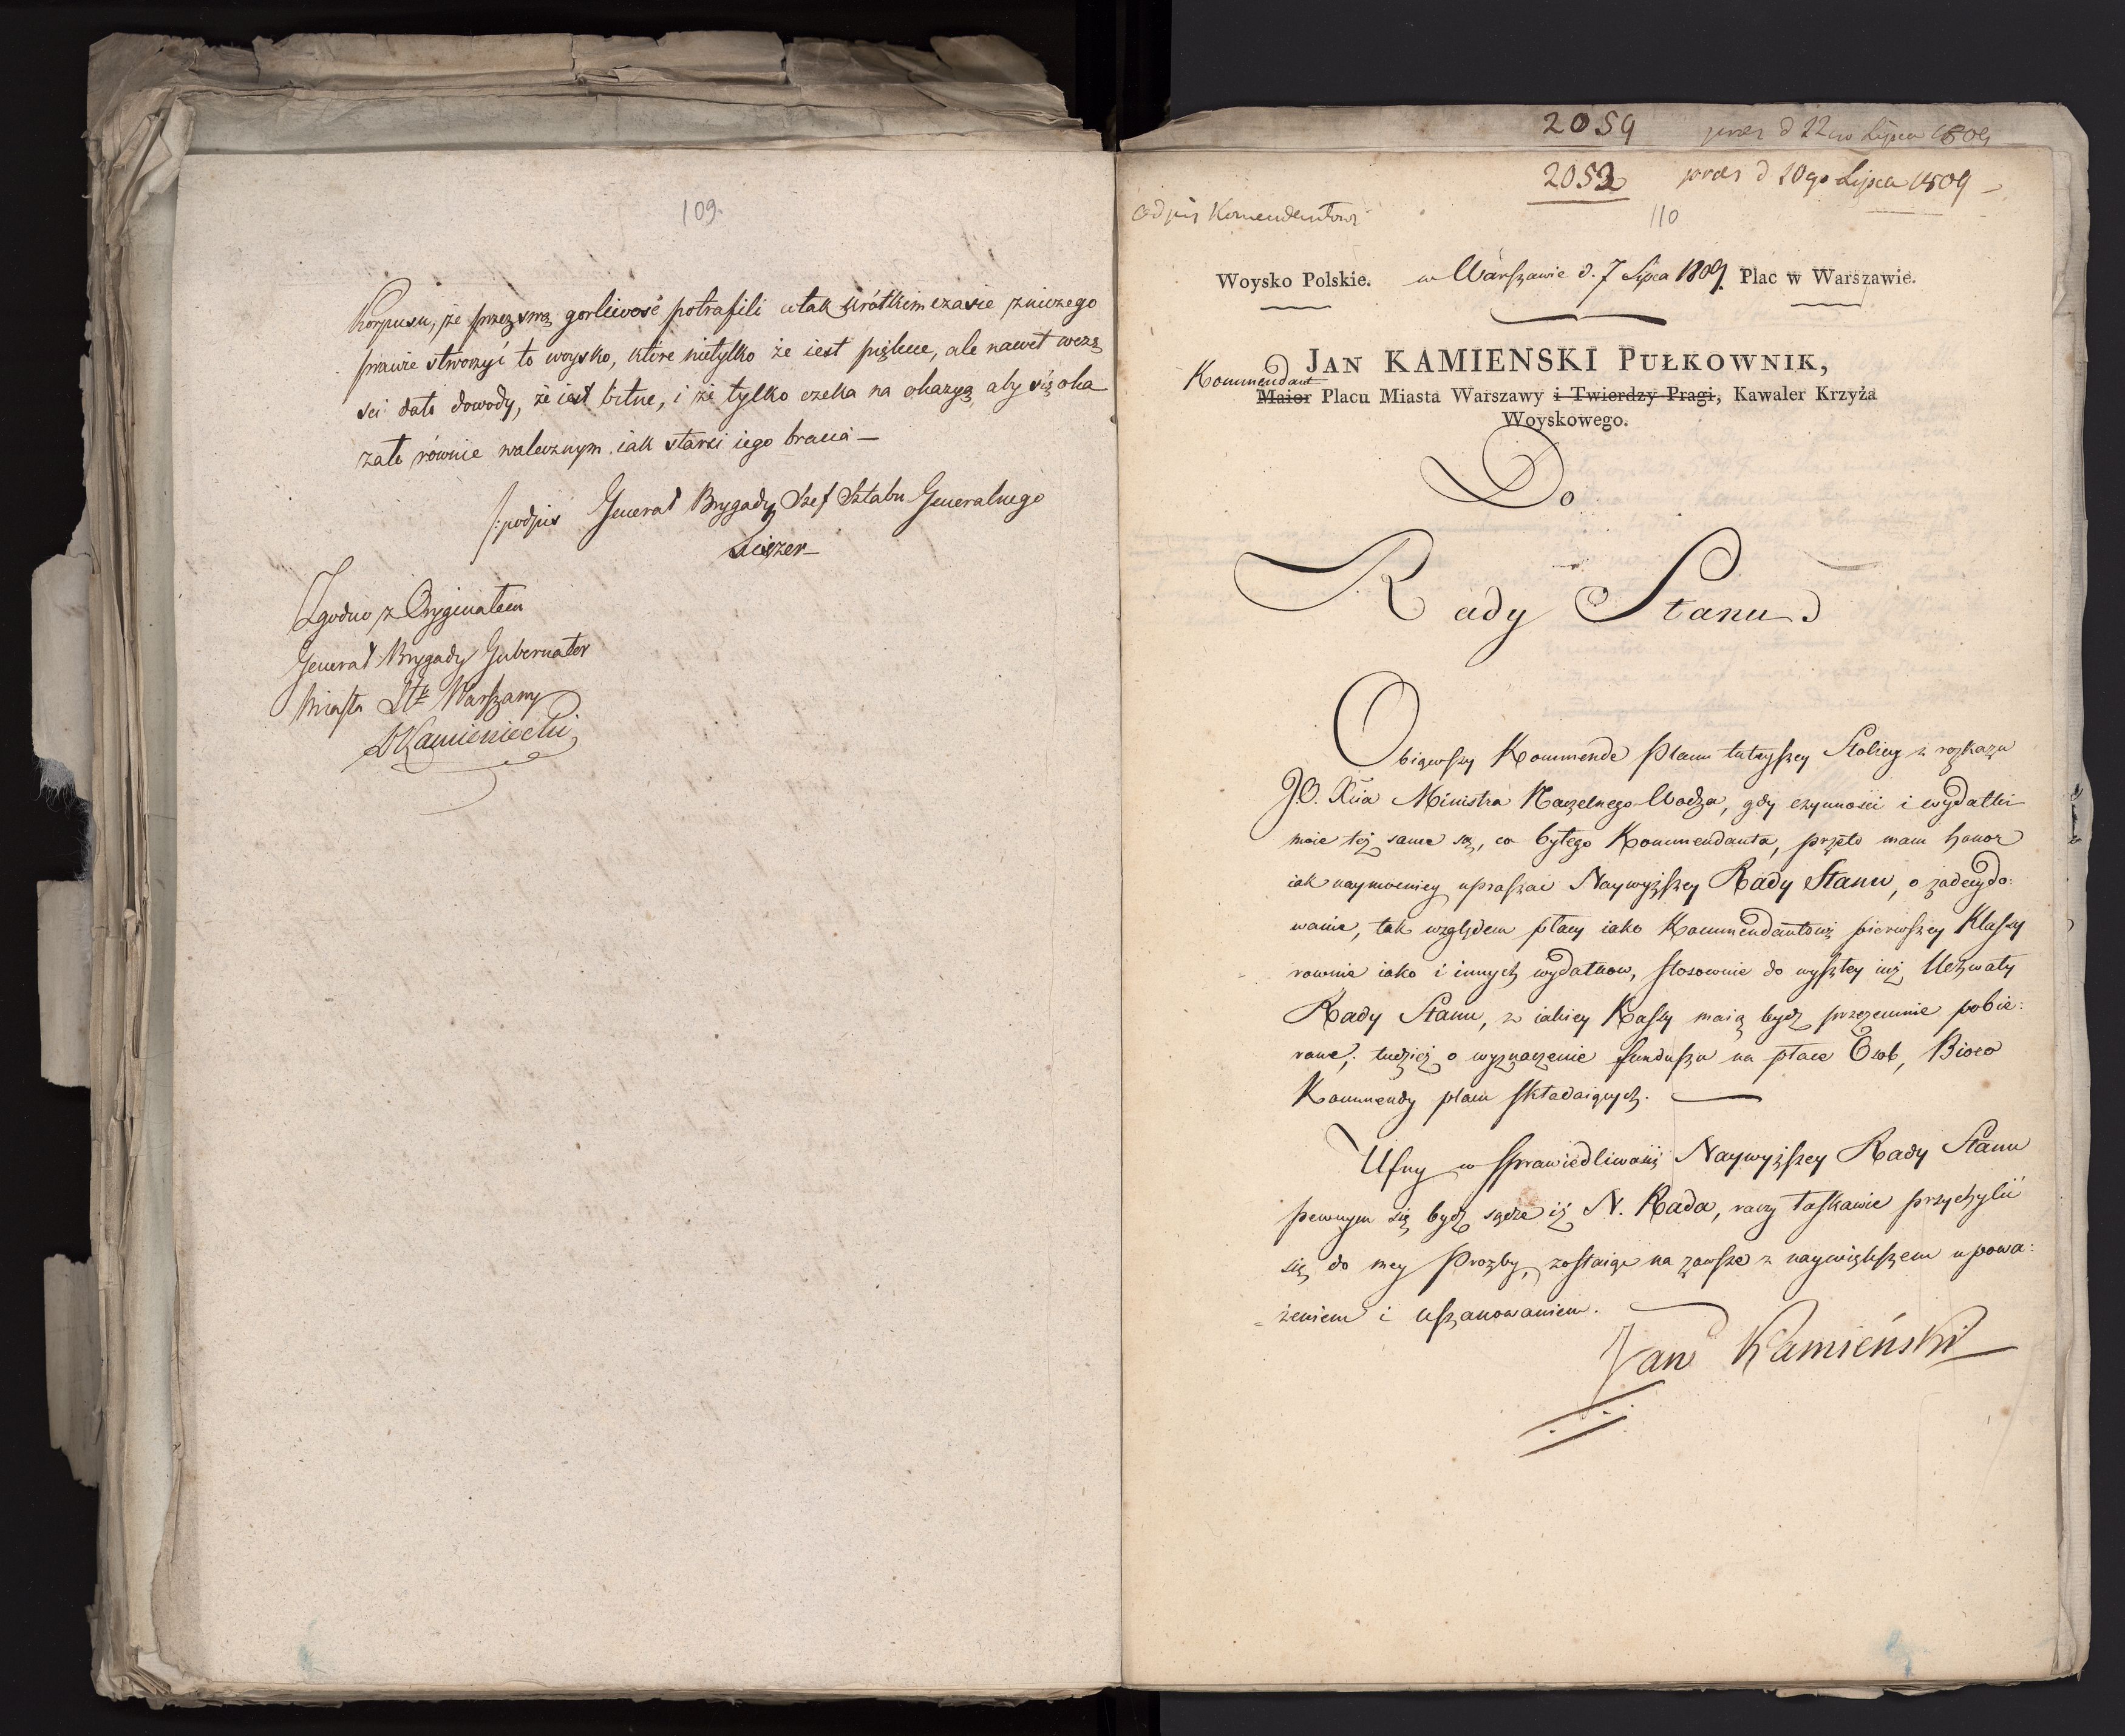 109.
Korpusu, że przez swą gorliwość potrafili w tak krótkim czasie z niczego
prawie stworzyć to woysko, które nietylko że iest piękne, ale nawet wczę
ści dało dowody, że iest bitne, i że tylko czeka na okazyą, aby się oka
zało równie walecznym iak starsi iego bracia —
/:podpis Generał Brygady Szef Sztabu Generalnego
Fiszer —
Zgodno z Oryginałem
Generał Brygady Gubernator
Miasta Stł. Warszawy
Kamieniecki
2059 prez d 22go Lipca 1809
2053 prez d 20go Lipca 1809 —
odpis Komendantowi
110
Woysko Polskie. w Warszawie d. 7 Lipca 1809. Plac w Warszawie.
JAN KAMIENSKI PUŁKOWNIK,
Kommendant
Maior Placu Miasta Warszawy i Twierdzy Pragi, Kawaler Krzyża
Woyskowego.
Do
Rady Stanu
Obiąwszy Kommende Placu tuteyszey Stolicy z rozkazu
J.O. Xcia Ministra Naczelnego Wodza, gdy czynności i wydatki
moie też same są, co byłego Kommendanta, przeto mam honor
iak naymocniey upraszać Naywyższey Rady Stanu, o zadecydo:
wanie, tak względem płacy iako Kommendantowi pierwszey Klassy
rownie iako i innych wydatkow, stosownie do wyszłey iuż Uchwały
Rady Stanu, z iakiey Kassy maią bydź przezemnie pobie:
rane; tudzież o wyznaczenie funduszu na płace Osob, Bioro
Kommendy placu składaiących. —
Ufny w sprawiedliwości Naywyższey Rady Stanu
pewnym się bydź sądze iż N. Rada, raczy łaskawie przychylić
się do mey Prozby, zostaiąc na zawsze z naywiększem upowa:
żeniem i uszanowaniem.
Jan Kamieński